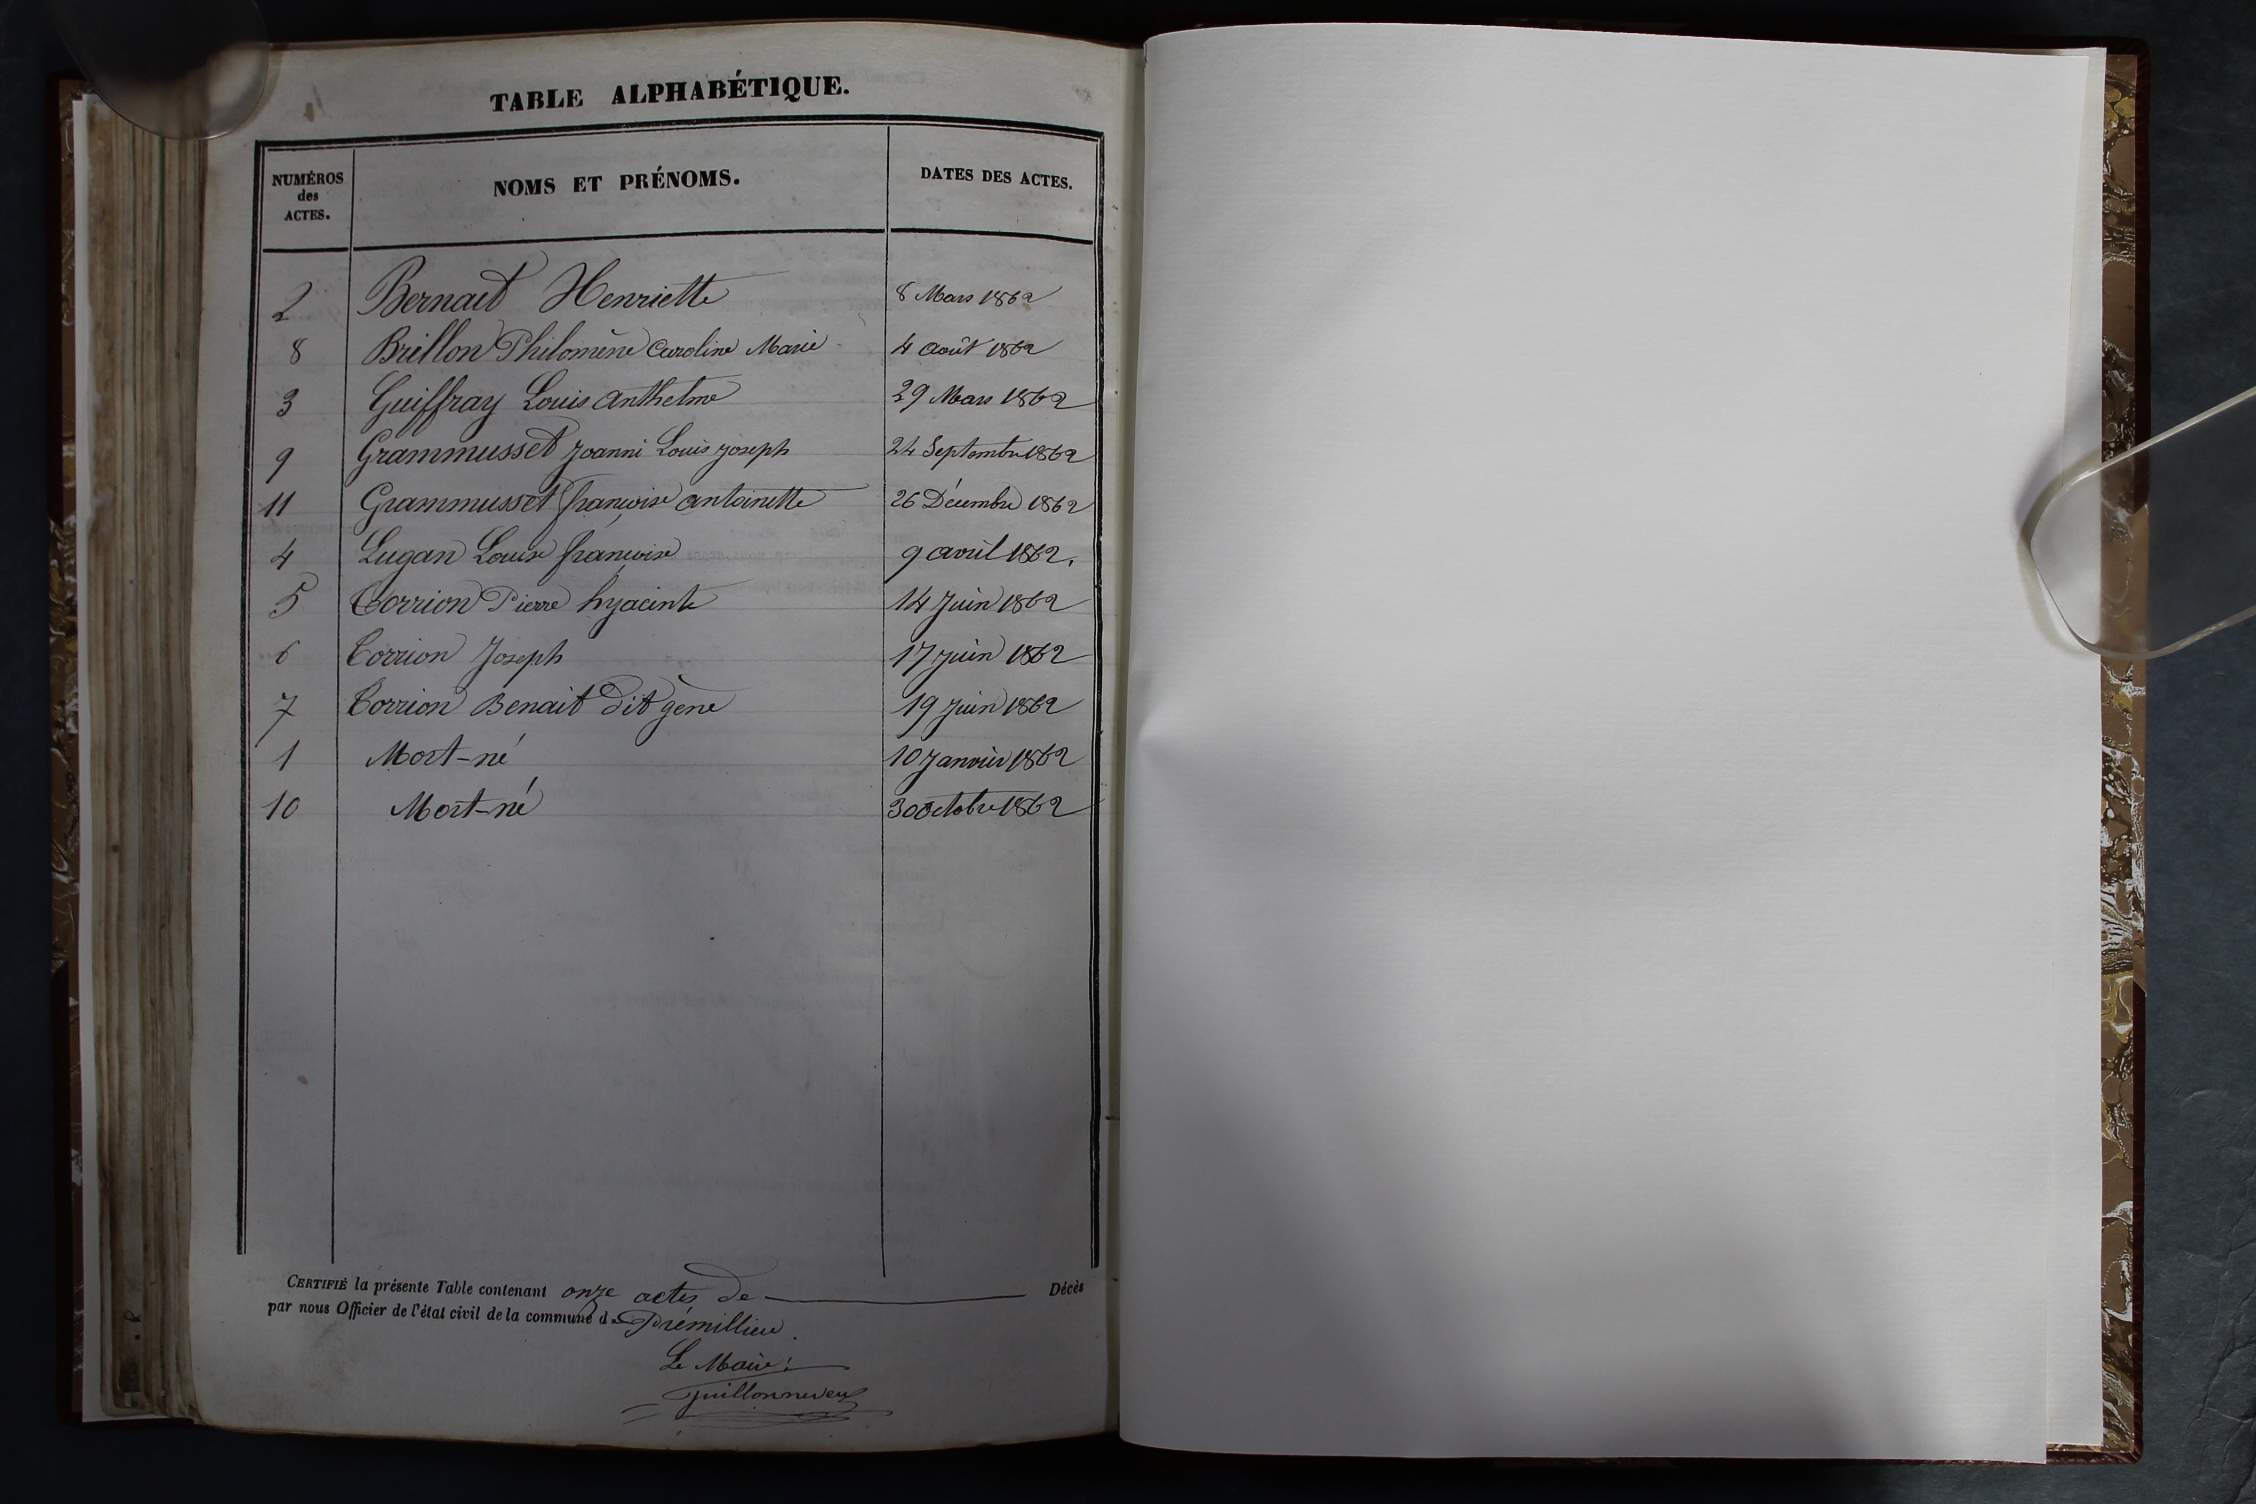 TABLE ALPHABÉTIQUE.
NUMÉROS des ACTES.
NOMS ET PRÉNOMS.
DATES DES ACTES.
2 Bernait Henriette 8 Mars 1862
8 Brillon Philomène Caroline Marie 4 août 1862
3 Guiffray Louis anthelme 29 Mars 1862
9 Grammusset Joanni Louis joseph 24 Septembre 1862
11 Grammusset françoise antoinette 26 Décembre 1862
4 Lugan Louise françoise 9 avril 1862.
5 Corrion Pierre hyacinte 14 Juin 1862
6 Corrion Joseph 17 juin 1862
7 Corrion Benait dit gène 19 Juin 1862
1 Mort-né 10 Janvier 1862
10 Mort-né 30 octobre 1862
CERTIFIÉ la présente Table contenant onze actes de Décès
par nous Officier de l'état civil de la commune de Prémillieu.
Le Maire: